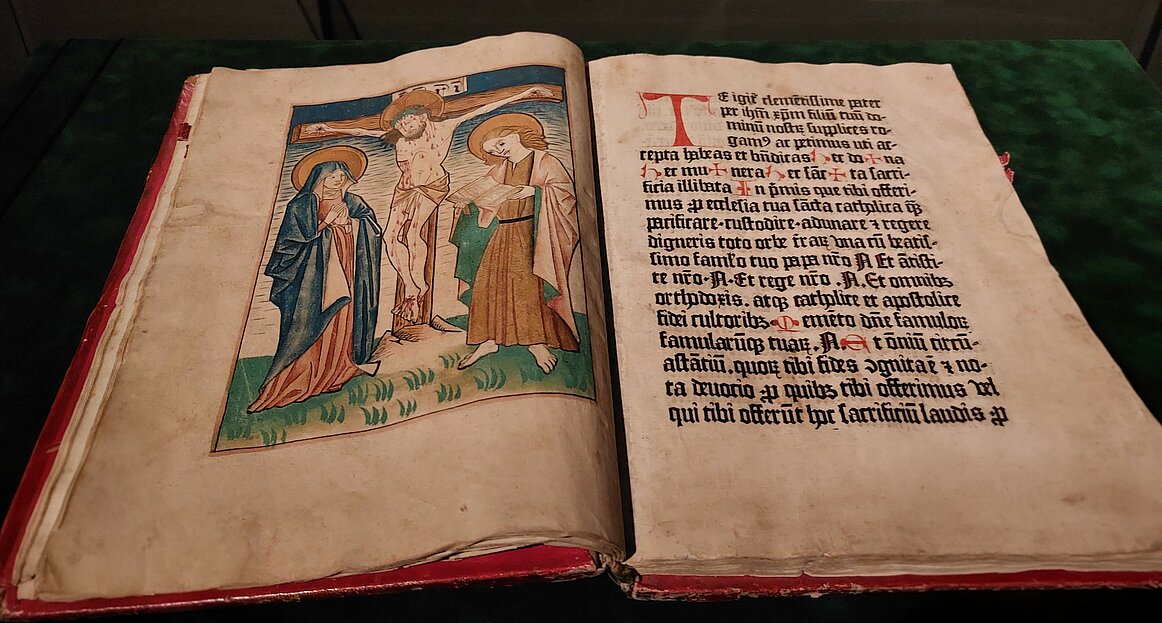 TE igit᷑ clemētissime pater
per ihm̄ xp̄m filiū tuū do-
minū nostꝝ supplices ro-
gamꝰ ac petimus uti ac-
cepta habeas et bn̄dicas hec do✝na
hec mu✝nera hec sāc✝ta sacri-
ficia illibata In p̄mis que tibi offeri-
mus ꝓ ecclesia tua sācta catholica quā
pacificare·custodire·adunare ⁊ regere
digneris toto orbe t̄raꝝ vna cū beatis-
simo famło tuo papa nr̄o N Et ātisti-
te nr̄o·N·Et rege nr̄o .N. Et omnibꝫ
orthodoxis. atqꝫ catholice et apostolice
fidei cultoribꝫ. Memēto dn̄e famuloꝝ
famularūqꝫ tuaꝝ .N. Et ōniū circū-
astātiū.quoꝝ tibi fides ꝯgnita ē ⁊ no-
ta deuocio ꝓ quibꝫ tibi offerimus vel
qui tibi offerūt hoc sacrificiū laudis ꝓ